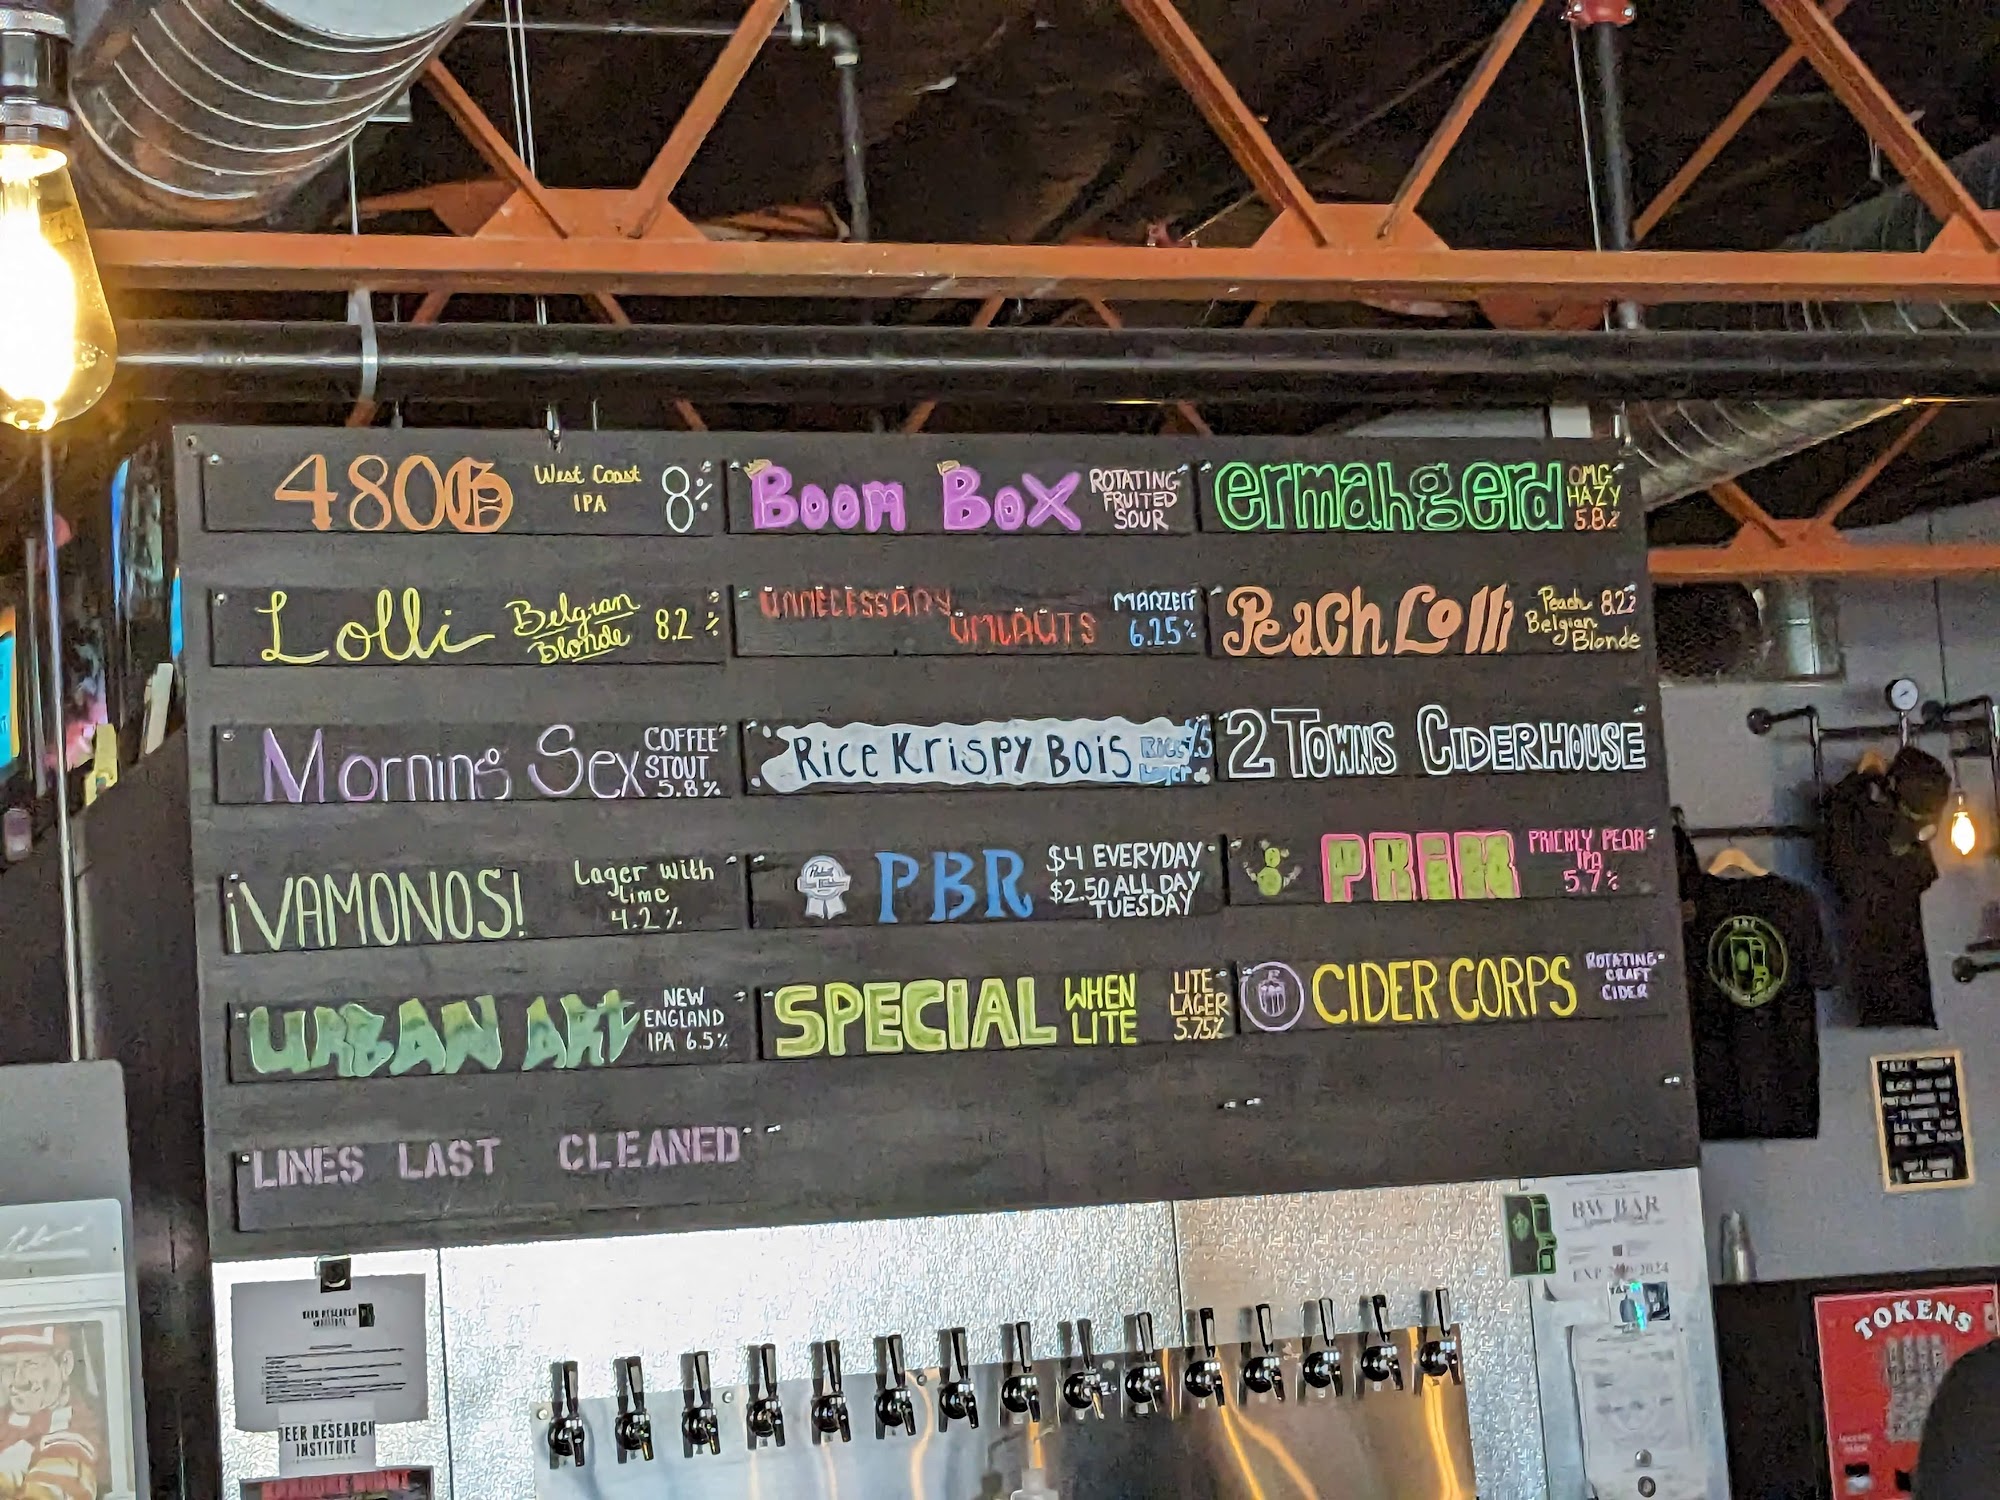 480G West Coast IPA 8%
BOOM BOX ROTATING FRUITED SOUR
ermahgerd OMG HAZY 5.8%
Lolli Belgian Blonde 8.2%
ÜNNËCËSSÄRY ÜMLÄÜTS MARZEN 6.25%
PEaCh LOlli Peach Belgian Blonde 8.2%
Morning Sex COFFEE STOUT 5.8%
RiCe KRiSPY BOiS
2 TOWNS CIDERHOUSE
¡VAMONOS! Lager with lime 4.2%
PBR $4 EVERYDAY $2.50 ALL DAY TUESDAY
PRiCK PRICKLY PEAR IPA 5.7%
URBAN ART NEW ENGLAND IPA 6.5%
SPECIAL WHEN LITE LITE LAGER 5.75%
CIDER CORPS ROTATING CRAFT CIDER
LINES LAST CLEANED
BW BAR
BEER RESEARCH
INSTITUTE
BEER RESEARCH
INSTITUTE
TOKENS